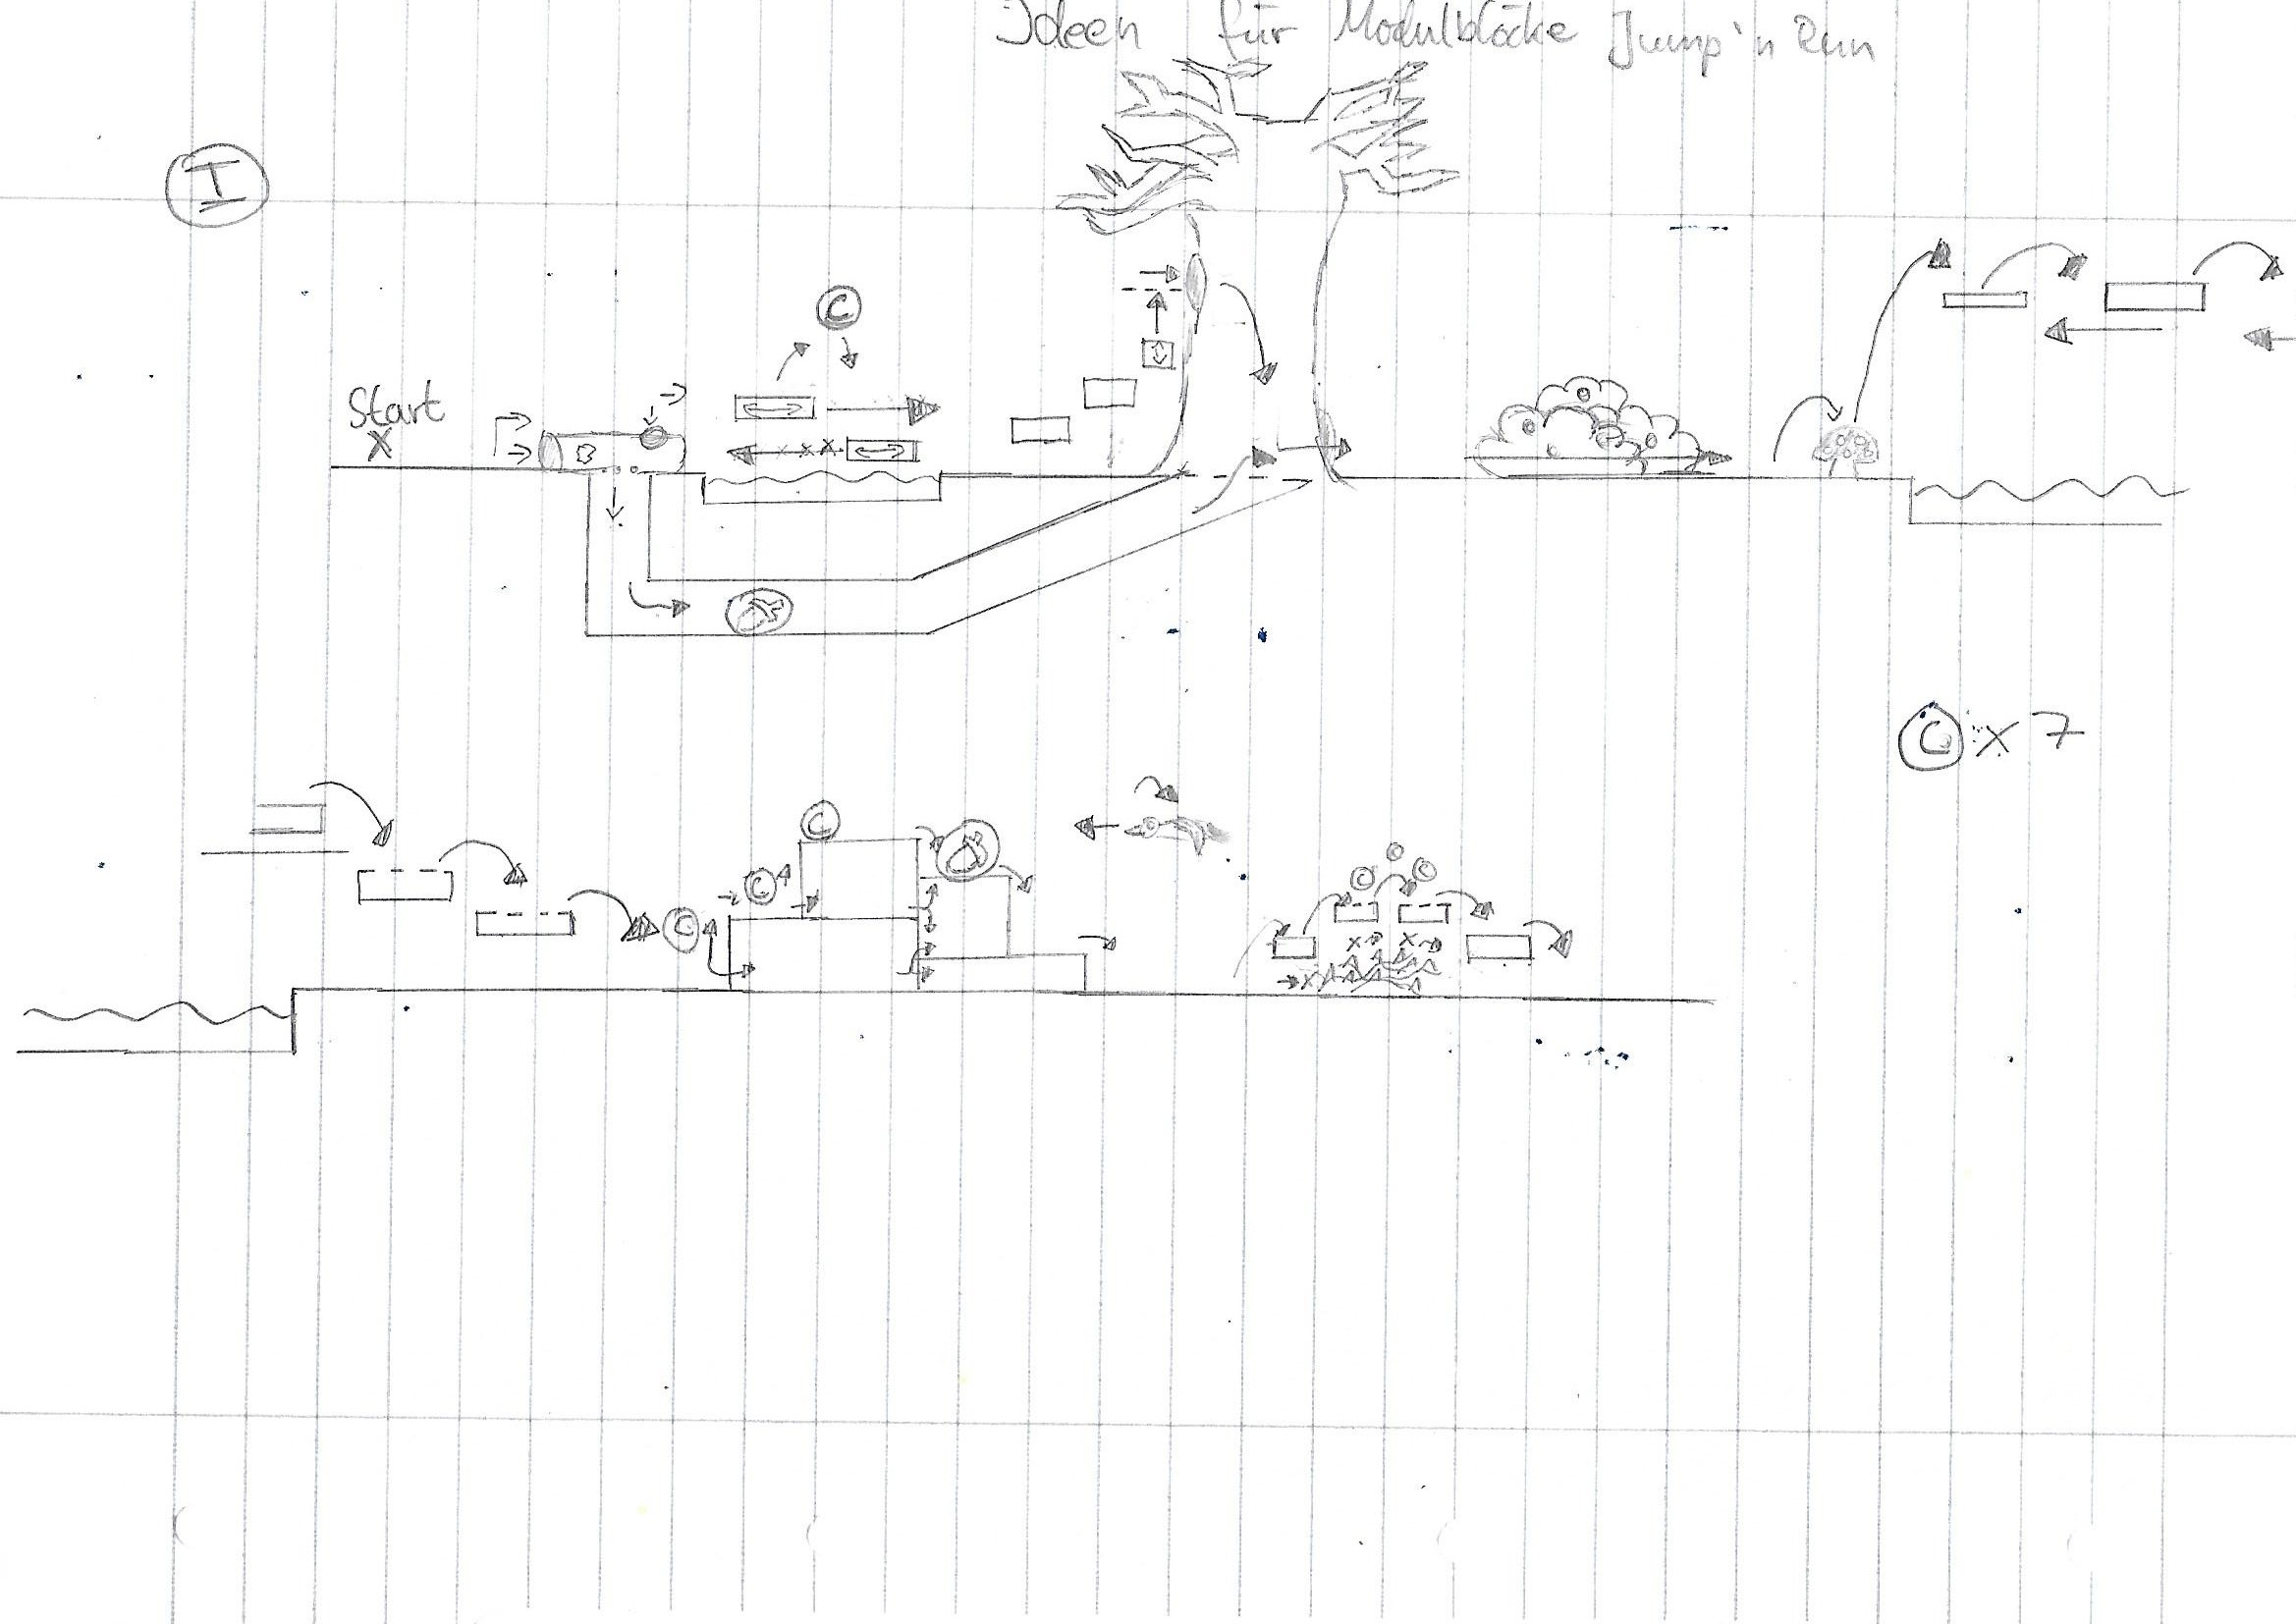 Ideen für Modulblöcke Jump'n Run
I
C
Start
X
C x 7
C
C
C
C
C
C